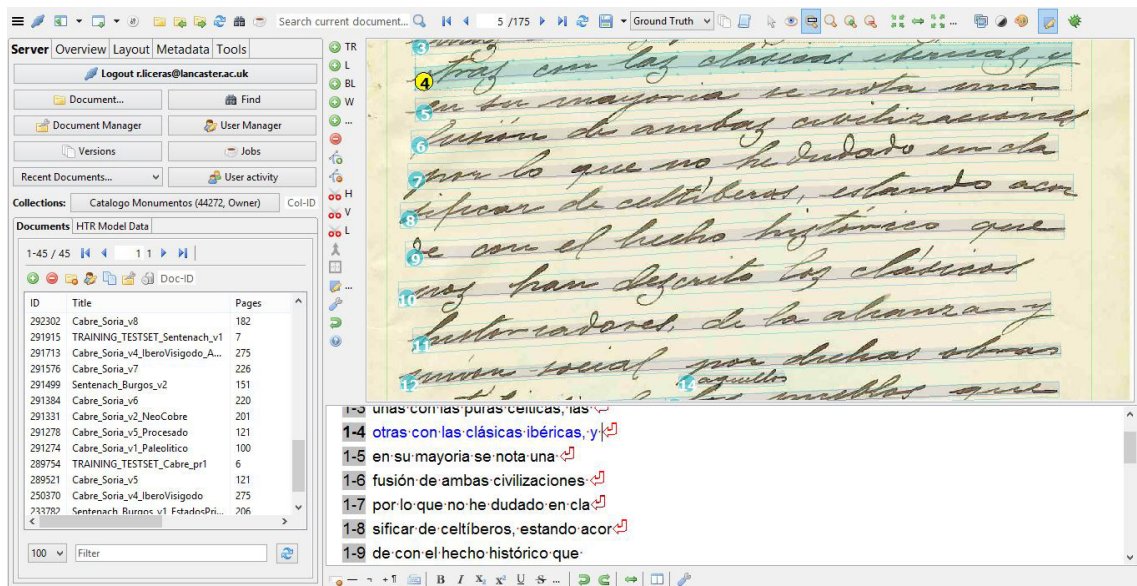 Search current document...
5 /175
Ground Truth
Server Overview Layout Metadata Tools
Logout r.liceras@lancaster.ac.uk
Document... Find
Document Manager User Manager
Versions Jobs
Recent Documents... User activity
Collections: Catalogo Monumentos (44272, Owner) Col-ID
Documents HTR Model Data
1-45 / 45 1 1
Doc-ID
ID Title Pages
292302 Cabre_Soria_v8 182
291915 TRAINING_TESTSET_Sentenach_v1 7
291713 Cabre_Soria_v4_IberoVisigodo_A... 275
291576 Cabre_Soria_v7 226
291499 Sentenach_Burgos_v2 151
291384 Cabre_Soria_v6 220
291331 Cabre_Soria_v2_NeoCobre 201
291278 Cabre_Soria_v5_Procesado 121
291274 Cabre_Soria_v1_Paleolitico 100
289754 TRAINING_TESTSET_Cabre_pr1 6
289521 Cabre_Soria_v5 121
250370 Cabre_Soria_v4_IberoVisigodo 275
233782 Sentenach_Burgos_v1_EstadosPri... 206
100 Filter
TR
L
BL
W
...
H
V
L
...
3
4 otras con las clásicas ibéricas, y
5 en su mayoria se nota una
6 fusión de ambas civilizaciones
7 por lo que no he dudado en cla
8 sificar de celtíberos, estando acor
9 de con el hecho histórico que
10 nos han descrito los clásicos
11 historiadores, de la alianza y
12 unión social por dichas obras
14 aquellos
pueblos que
1-3 unas con las puras célticas, las
1-4 otras con las clásicas ibéricas, y
1-5 en su mayoria se nota una
1-6 fusión de ambas civilizaciones
1-7 por lo que no he dudado en cla
1-8 sificar de celtíberos, estando acor
1-9 de con el hecho histórico que
B I X₂ X² U S ...